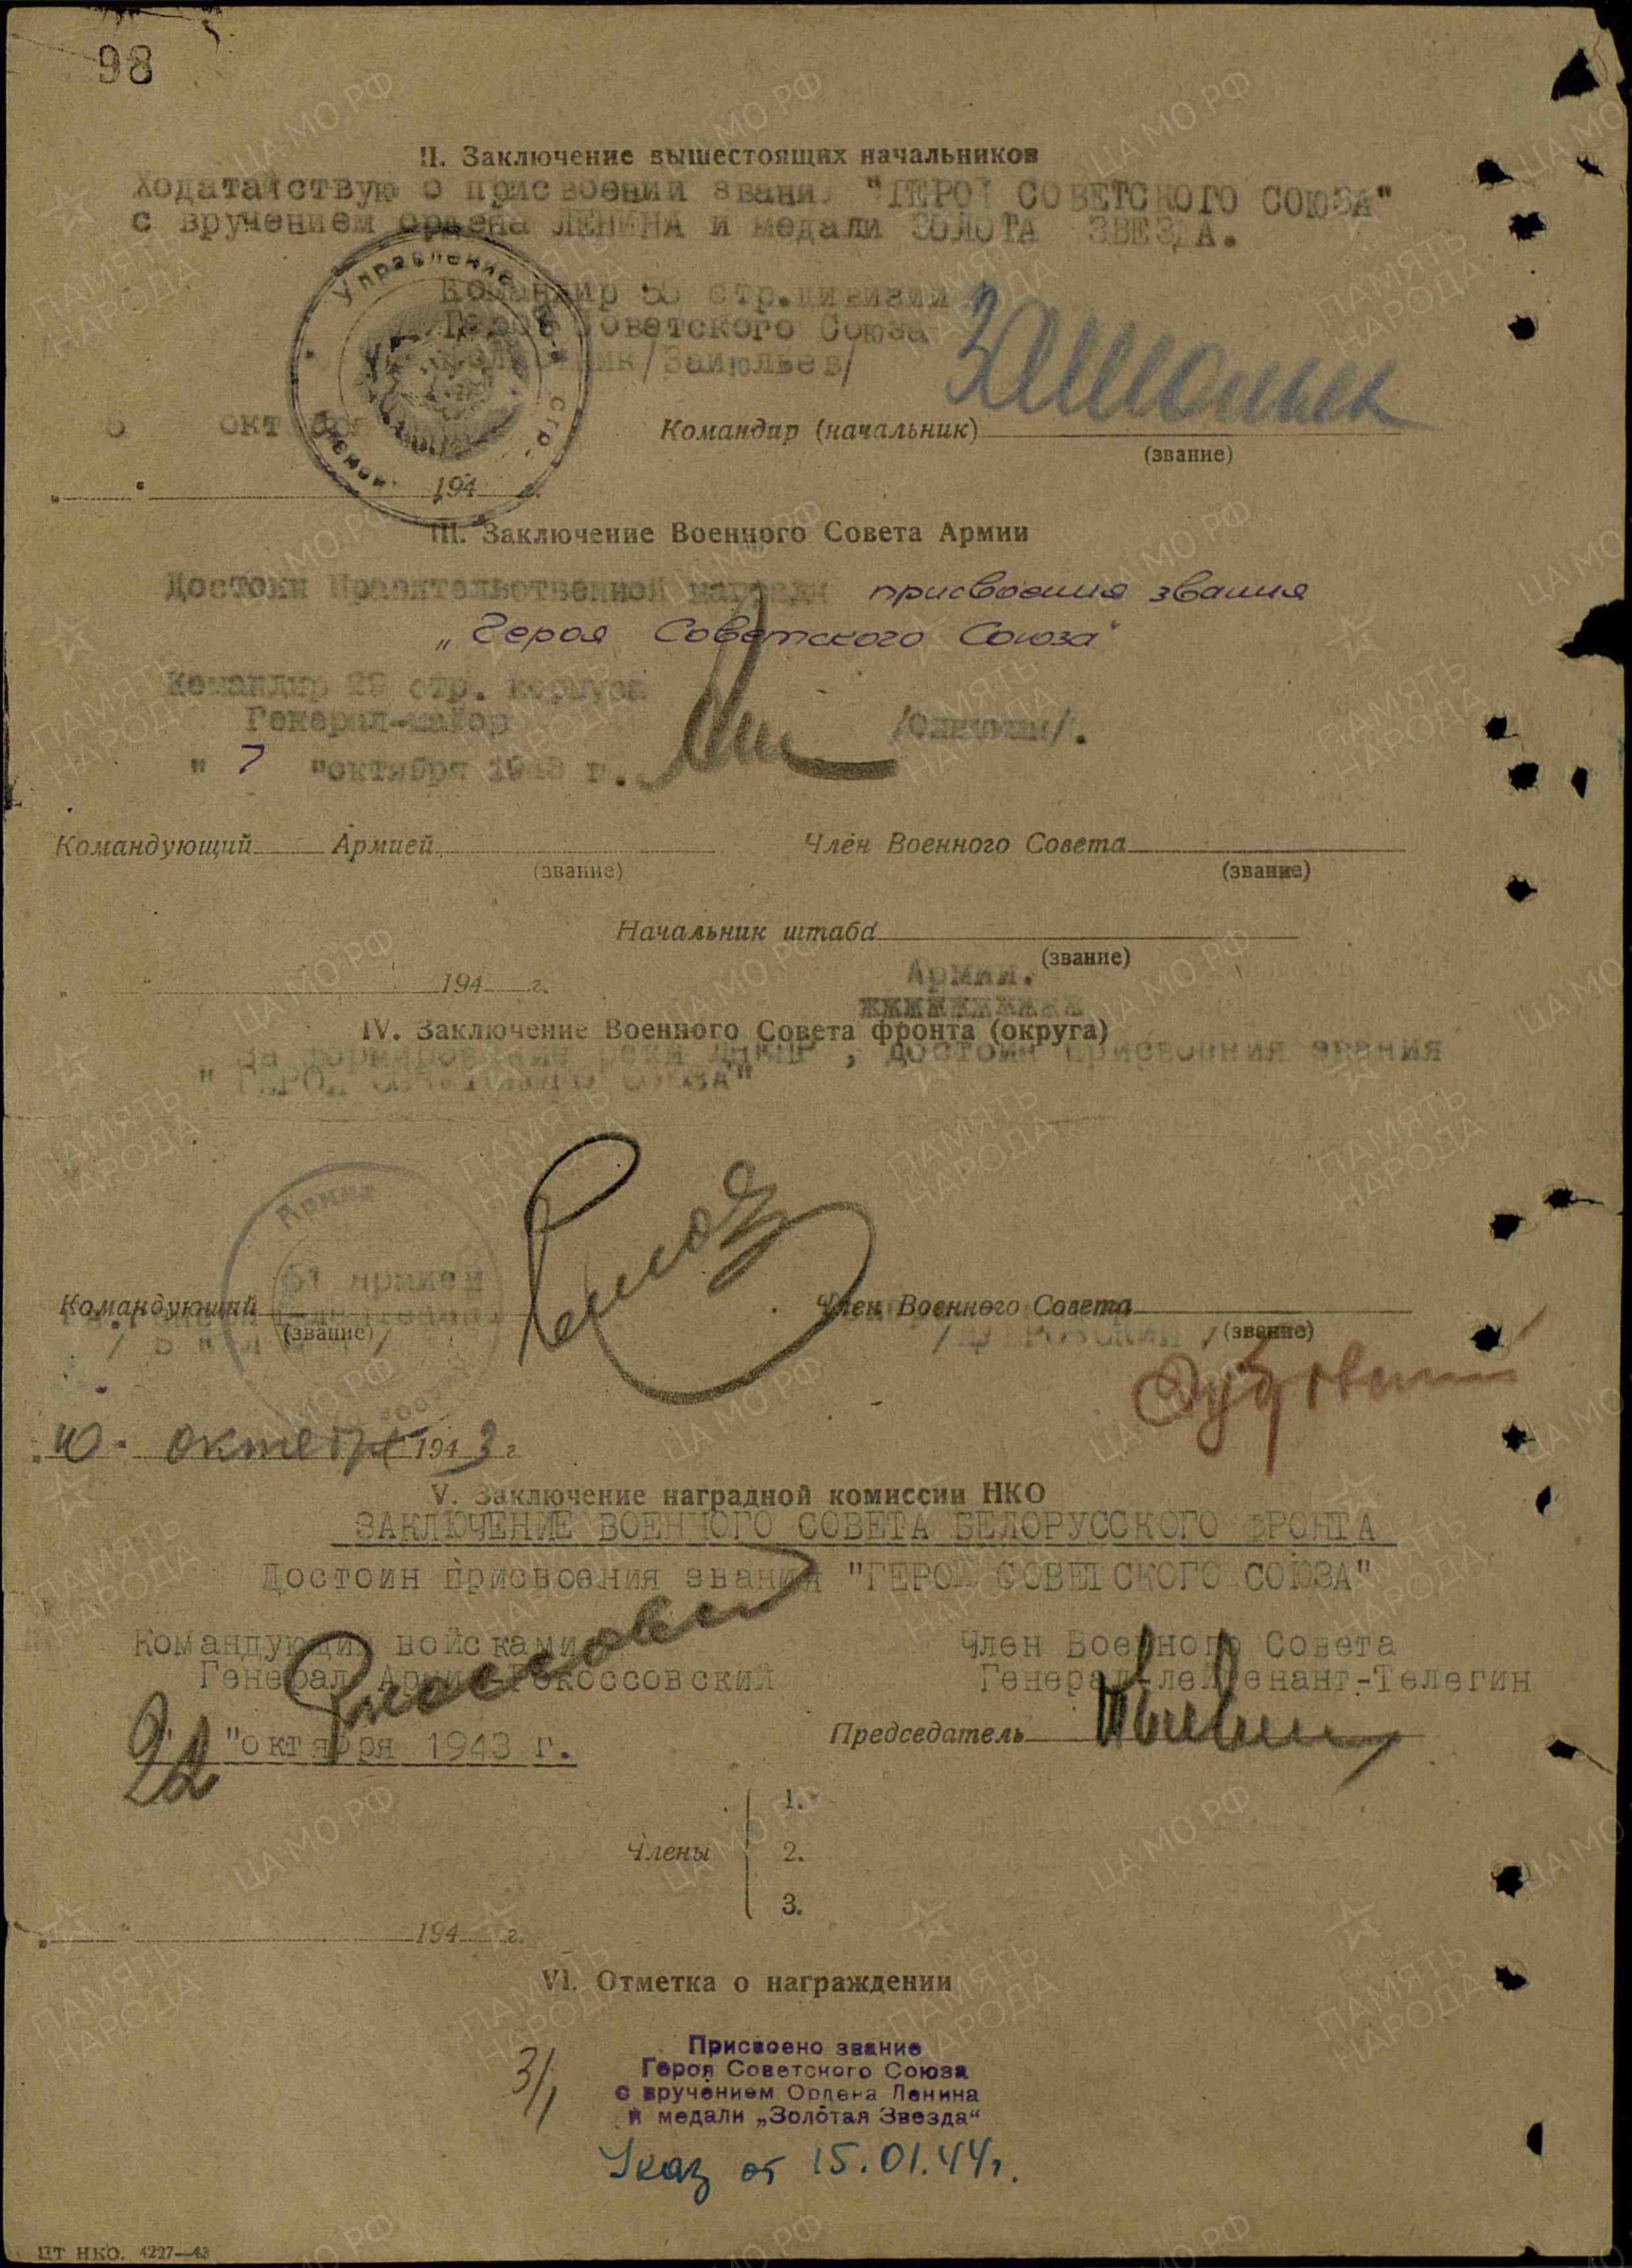 98
II. Заключение вышестоящих начальников
Ходатайствую о присвоении звани "ГЕРОЙ СОВЕТСКОГО СОЮЗА"
с вручением ордена ЛЕНИНА и медали ЗОЛОТА ЗВЕЗДА.
Управление стр.
Командир 55 стр.дивизии
Герой Советского Союза
Полковник/Заиюльев/
Заиюльев
5 октября
Командир (начальник)
(звание)
194 г.
III. Заключение Военного Совета Армии
Достоин Правительственной награды присвоения звания
„Героя Советского Союза"
Командир 29 стр. корпуса
Генерал-майор
" 7 "октября 1943 г.
Командующий Армией Член Военного Совета
(звание) (звание)
Начальник штаба
(звание)
194 г.
Армии.
ЖЖЖЖЖЖЖЖЖЖ
IV. Заключение Военного Совета фронта (округа)
За форсирование реки ДНЕПР , достоин присвоения звания
" ГЕРОЙ СОВЕТСКОГО СОЮЗА"
Армия
61 армией
Командующий Член Военного Совета
(звание) (звание)
Белов
Дубровский
„10" октября 1943 г.
V. Заключение наградной комиссии НКО
ЗАКЛЮЧЕНИЕ ВОЕННОГО СОВЕТА БЕЛОРУССКОГО ФРОНТА
Достоин присвоения звания "ГЕРОЙ СОВЕТСКОГО СОЮЗА"
Командующий войсками Член Военного Совета
Генерал Армии-Рокоссовский Генерал-лейтенант-Телегин
Рокоссовский
22 "октября 1943 г.
Председатель
Телегин
Члены
1.
2.
3.
194 г.
VI. Отметка о награждении
Присвоено звание
Героя Советского Союза
с вручением Ордена Ленина
и медали „Золотая Звезда"
3/1
Указ от 15.01.44г.
ЦТ НКО. 4227—43
ПАМЯТЬ НАРОДА
ЦА МО РФ